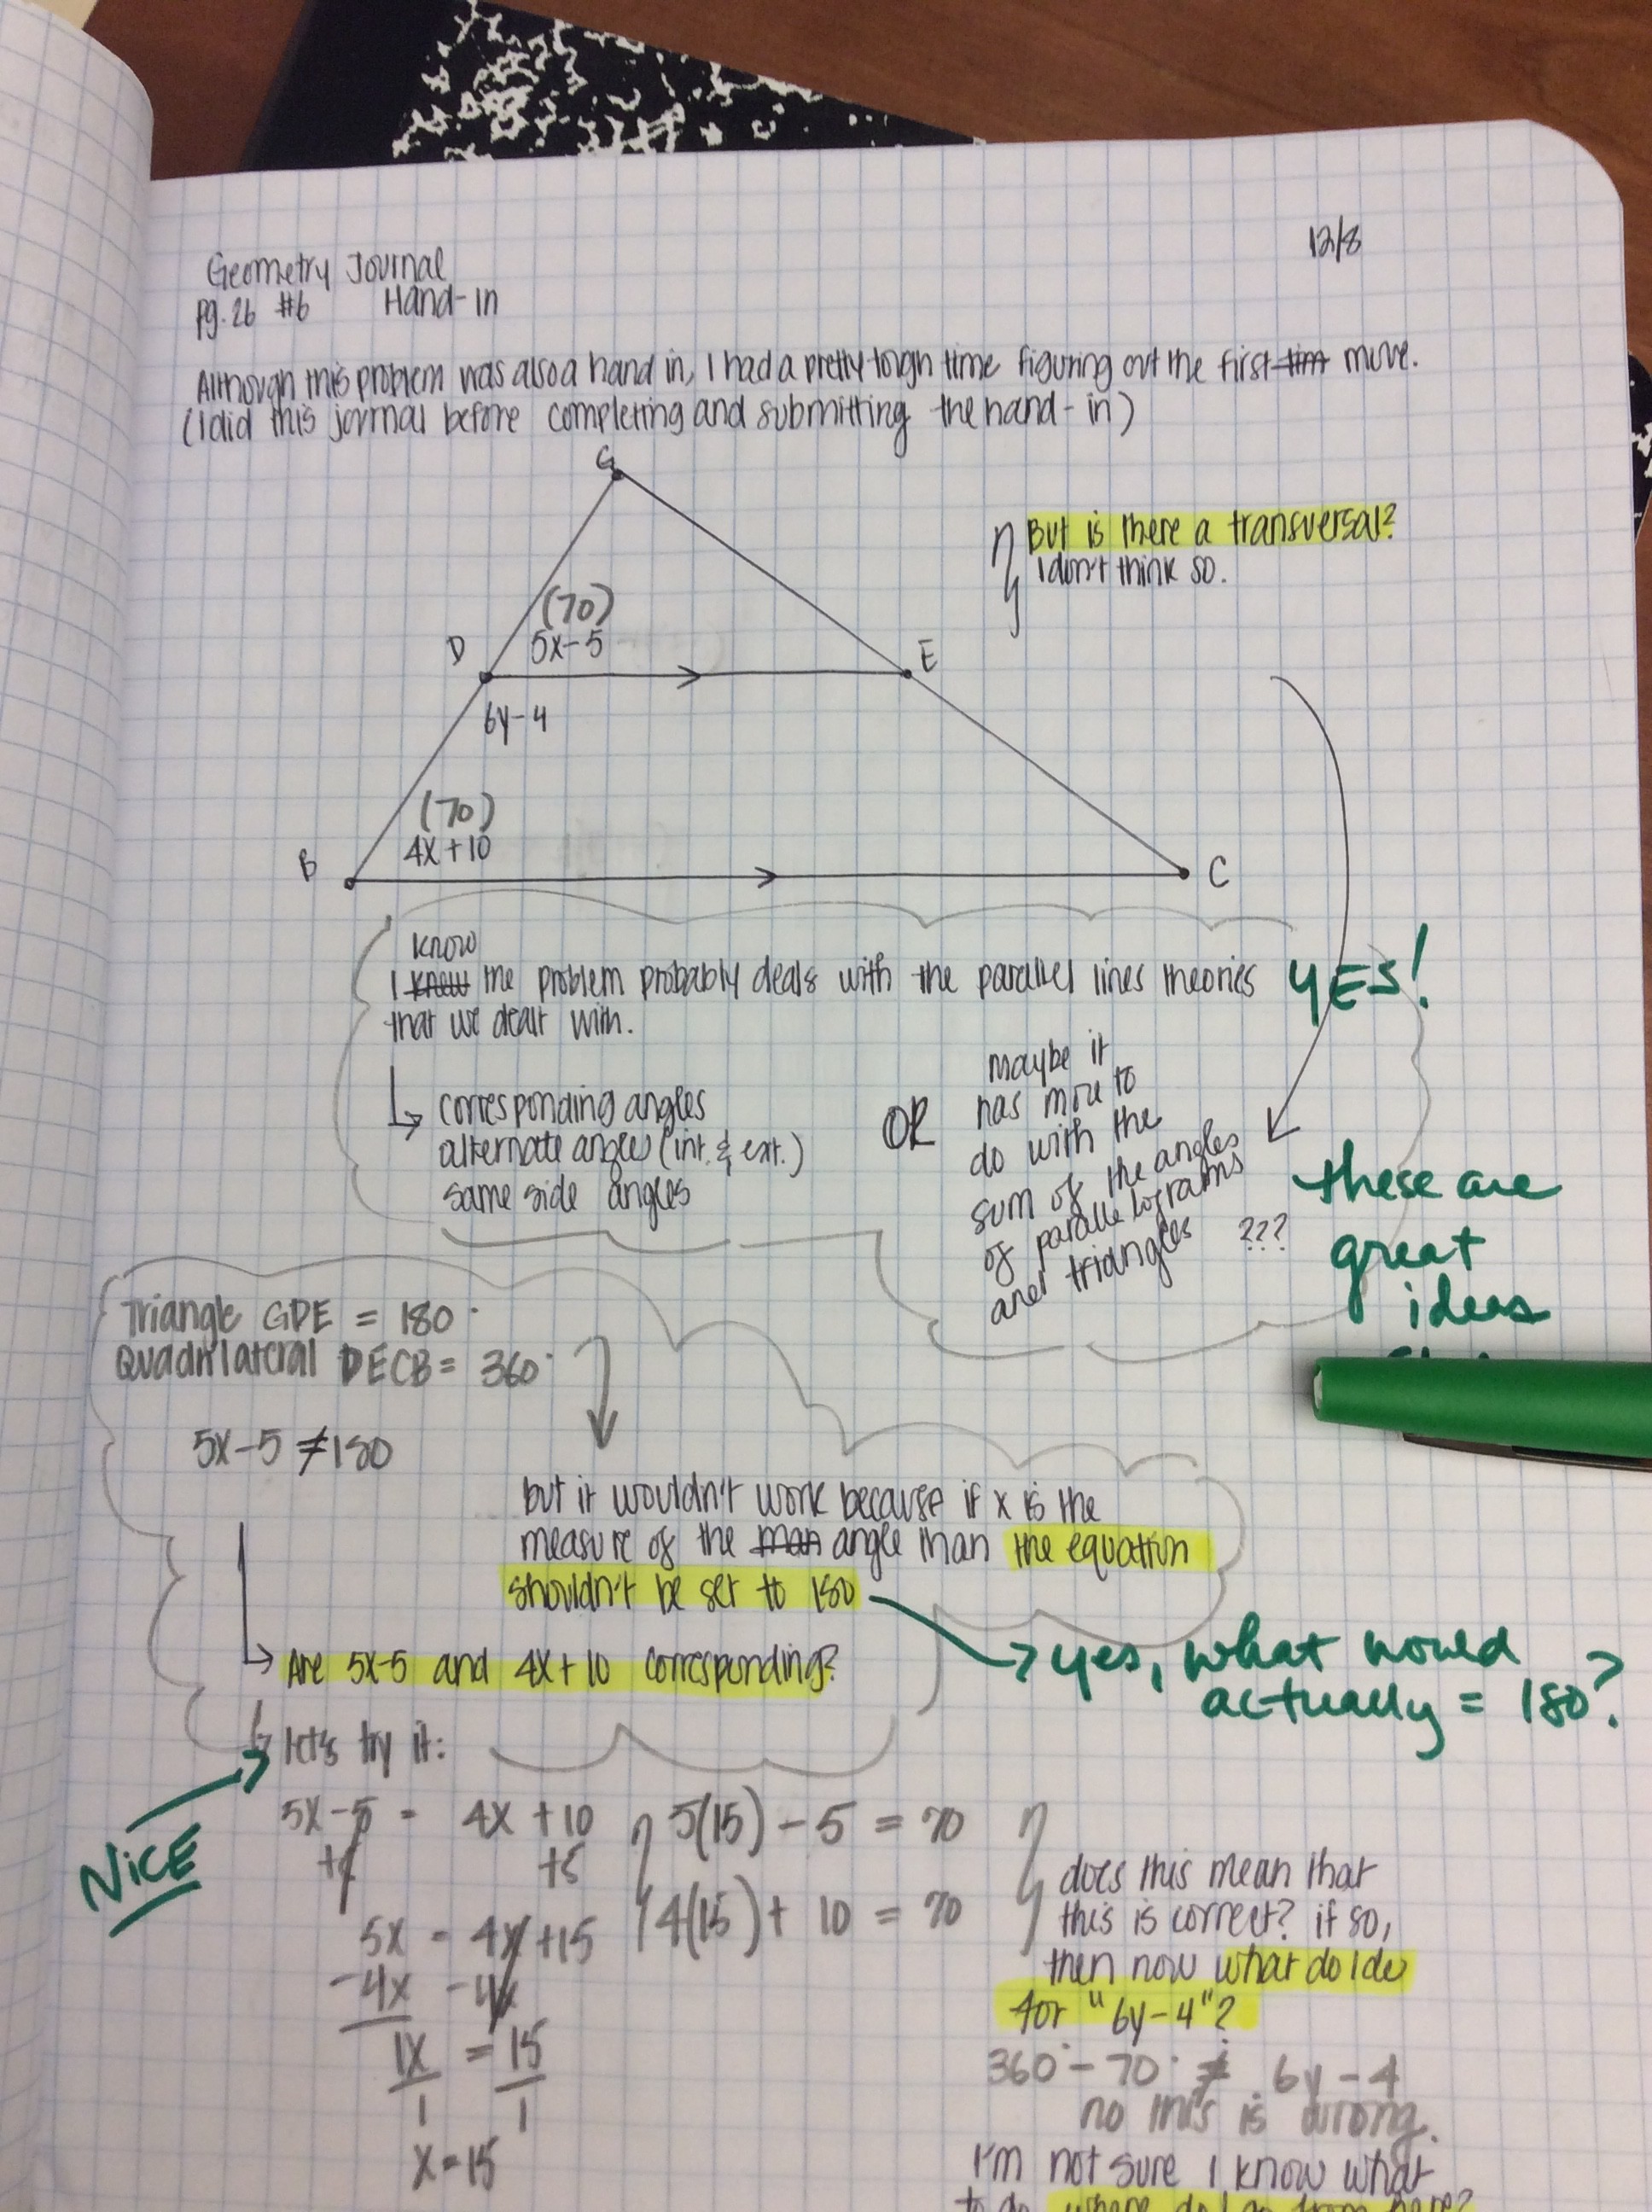 12/8
Geometry Journal
pg. 26 #6 Hand-in
Although this problem was also a hand in, I had a pretty tough time figuring out the first tim move.
(I did this journal before completing and submitting the hand-in)
G
But is there a transversal?
I don't think so.
(70)
D 5x-5 E
6y-4
(70)
4x+10
B C
know
I knew the problem probably deals with the parallel lines theories YES!
that we dealt with.
corresponding angles
alternate angles (int. & ext.)
same side angles
OR
maybe it
has more to
do with the
sum of the angles
of parallelograms
and triangles ???
these are
great
ideas
Triangle GDE = 180°
Quadrilateral DECB = 360°
5x-5 ≠ 180
but it wouldn't work because if x is the
measure of the man angle than the equation
shouldn't be set to 180
Are 5x-5 and 4x+10 corresponding?
yes, what would
actually = 180?
let's try it:
NICE
5x-5 = 4x+10
+5 +5
5x = 4x+15
-4x -4x
1x = 15
1 1
x=15
5(15)-5 = 70
4(15)+10 = 70
does this mean that
this is correct? if so,
then now what do I do
for "6y-4"?
360°-70° ≠ 6y-4
no this is wrong.
I'm not sure I know what
to do where do I go from here?